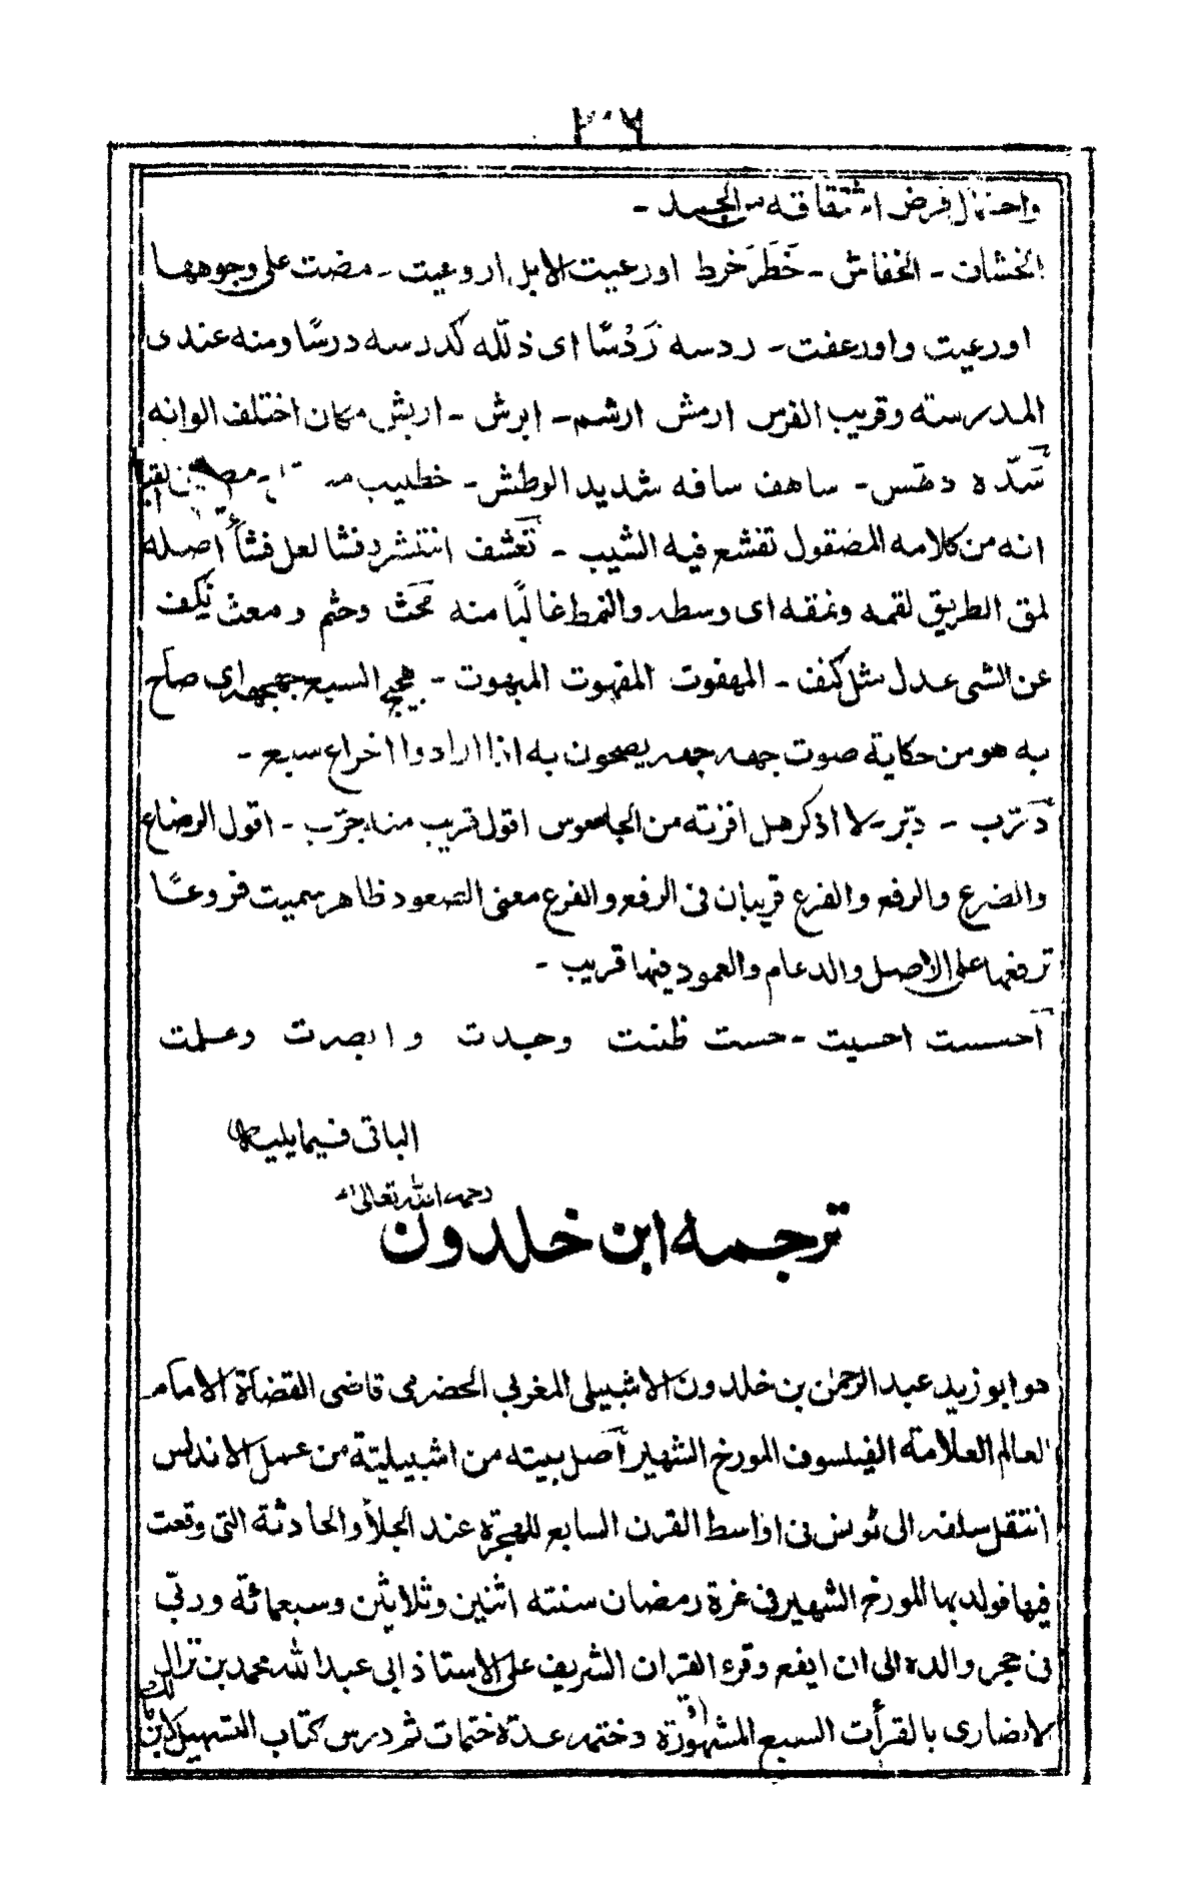 ٢٠٦
واحتمال فرض اشتقاقه من الجسد -
الخشان - الخفاش - خَطَرَ خرط اورعيت الابل اروعيت - مضت على وجوهها
اورعيت واورعفت - ردسه رَدْسًا اى ذلّله كدرسه درسًا ومنه عندى
المدرسته وقريب الفرس ارمش ارشم - ابرش - اربش مكان اختلف الوانه
شدّه دهس - ساهف سافه شديد الوطش - خطيب
انه من كلامه المصقول تفشع فيه الشيب - تعشف انتشر دنشا لعل فشأ اصله
لمق الطريق لقمه ونمقه اى وسطه والنمط غالبًا منه محث وحثم و معث نكف
عن الشى عدل مثل كنف - المهفوت المقهوت المبهوت - هجج السبع جهجهه اى صاح
به هو من حكاية صوت جهه جهه يصيحون به اذا ارادوا اخراج سبع -
دترب - دبّر - لا اذكر هل افزته من الجاموس اقول قريب منه جرّب - اقول الرضاع
والضرع والرفع والفرع قريبان فى الرفع والفرع معنى الصعود ظاهر سميت فروعًا
ترفعها على الاصل والدعام والعمود فيها قريب -
احسست احسيت - حست ظننت وجدت وابصرت وعلمت
الباقى فيما يليه
رحمه الله تعالى
ترجمه ابن خلدون
هو ابو زيد عبد الرحمٰن بن خلدون الاشبيلى المغربي الحضرمى قاضى القضاة الامام
العالم العلامة الفيلسوف المورخ الشهير اصل بيته من اشبيليتة من عمل الاندلس
انتقل سلفه الى تونس فى اواسط القرن السابع للهجرة عند الجلأ والحادثة التى وقعت
فيها فولد بها المورخ الشهير فى غرة رمضان سنته اثنين وثلاثين وسبعمائة وربّي
فى حجر والده الى ان ايفع وقرء القران الشريف على الاستاذ ابى عبد الله محمد بن نزال
الانصارى بالقرأت السبع المشهورة وختمه عدة ختمات ثم درس كتاب التسهيل لابن
مالك